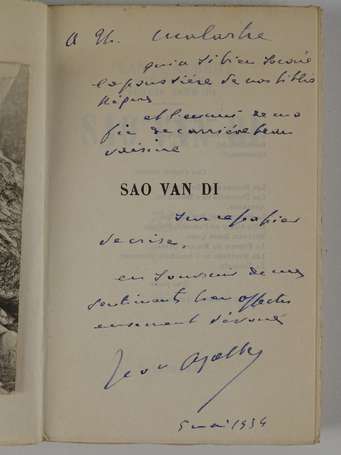 A M. Malarke
qui a si bien secoué
la poussière de nos biblio
et l'ennui de ma
fin de carrière beau
voisine
SAO VAN DI
sur ce papier
de crise.
en souvenir de mes
sentiments bien affectu
eusement dévoués
Jean Ajalbert
5 mai 1934